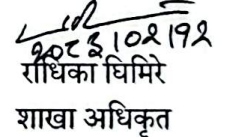 २०८३।०२।१२
राधिका घिमिरे
शाखा अधिकृत